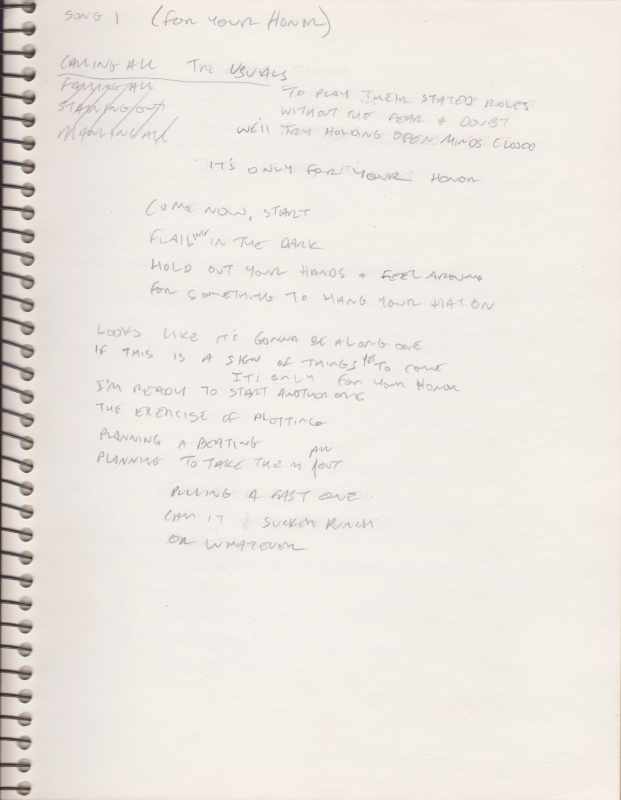 SONG 1 (FOR YOUR HONOR)
CALLING ALL THE USUALS
FALLING ALL
STALLING OUT
MAULING ALL
TO PLAY THEIR STATED ROLES
WITHOUT THE FEAR + DOUBT
WE'LL TRY HOLDING OPEN MINDS CLOSED
IT'S ONLY FOR YOUR HONOR
COME NOW, START
FLAILING IN THE DARK
HOLD OUT YOUR HANDS + FEEL AROUND
FOR SOMETHING TO HANG YOUR HAT ON
LOOKS LIKE IT'S GONNA BE A LONG ONE
IF THIS IS A SIGN OF THINGS YET TO COME
IT'S ONLY FOR YOUR HONOR
I'M READY TO START ANOTHER ONE
THE EXERCISE OF PLOTTING
PLANNING A BEATING
PLANNING TO TAKE THEM ALL OUT
PULLING A FAST ONE
CALL IT SUCKER PUNCH
OR WHATEVER